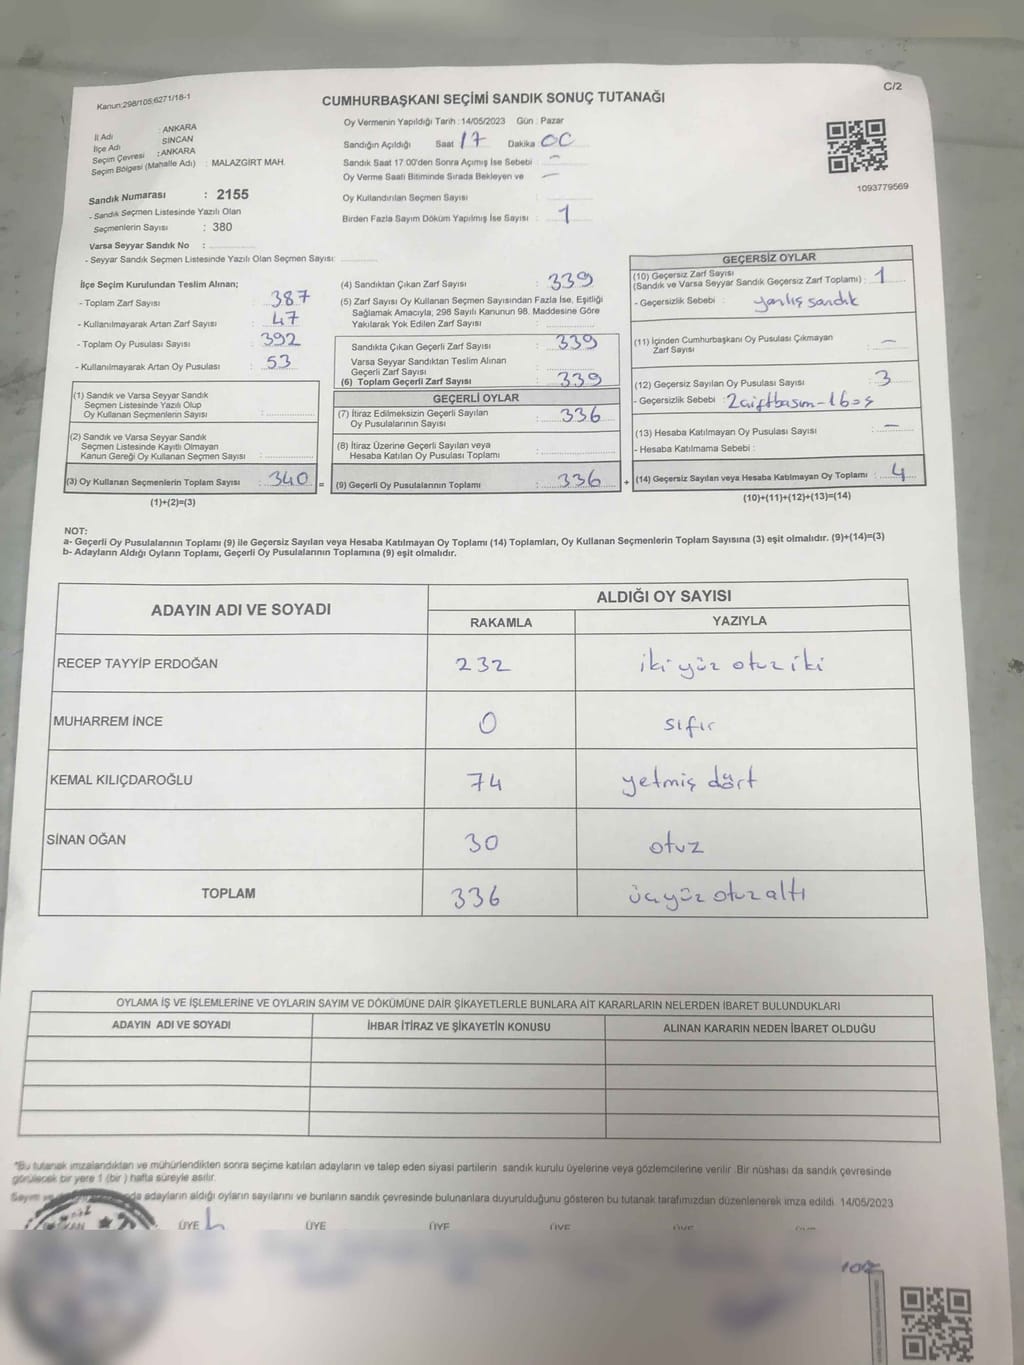 Kanun:298/105;6271/18-1
C/2
CUMHURBAŞKANI SEÇİMİ SANDIK SONUÇ TUTANAĞI
İl Adı : ANKARA
İlçe Adı SİNCAN
Seçim Çevresi : ANKARA
Seçim Bölgesi (Mahalle Adı) : MALAZGİRT MAH.
Sandık Numarası : 2155
- Sandık Seçmen Listesinde Yazılı Olan
Seçmenlerin Sayısı : 380
Varsa Seyyar Sandık No :
- Seyyar Sandık Seçmen Listesinde Yazılı Olan Seçmen Sayısı:
Oy Vermenin Yapıldığı Tarih : 14/05/2023 Gün : Pazar
Sandığın Açıldığı Saat 17 Dakika 00
Sandık Saat 17.00'den Sonra Açımış İse Sebebi : -
Oy Verme Saati Bitiminde Sırada Bekleyen ve -
Oy Kullandırılan Seçmen Sayısı :
Birden Fazla Sayım Döküm Yapılmış İse Sayısı : 1
1093779569
İlçe Seçim Kurulundan Teslim Alınan;
- Toplam Zarf Sayısı : 387
- Kullanılmayarak Artan Zarf Sayısı : 47
- Toplam Oy Pusulası Sayısı : 392
- Kullanılmayarak Artan Oy Pusulası : 53
(1) Sandık ve Varsa Seyyar Sandık
Seçmen Listesinde Yazılı Olup
Oy Kullanan Seçmenlerin Sayısı :
(2) Sandık ve Varsa Seyyar Sandık
Seçmen Listesinde Kayıtlı Olmayan
Kanun Gereği Oy Kullanan Seçmen Sayısı :
(3) Oy Kullanan Seçmenlerin Toplam Sayısı : 340 =
(1)+(2)=(3)
(4) Sandıktan Çıkan Zarf Sayısı : 339
(5) Zarf Sayısı Oy Kullanan Seçmen Sayısından Fazla İse, Eşitliği
Sağlamak Amacıyla; 298 Sayılı Kanunun 98. Maddesine Göre
Yakılarak Yok Edilen Zarf Sayısı :
Sandıkta Çıkan Geçerli Zarf Sayısı : 339
Varsa Seyyar Sandıktan Teslim Alınan
Geçerli Zarf Sayısı :
(6) Toplam Geçerli Zarf Sayısı : 339
GEÇERLİ OYLAR
(7) İtiraz Edilmeksizin Geçerli Sayılan
Oy Pusulalarının Sayısı : 336
(8) İtiraz Üzerine Geçerli Sayılan veya
Hesaba Katılan Oy Pusulası Toplamı :
(9) Geçerli Oy Pusulalarının Toplamı : 336 +
GEÇERSİZ OYLAR
(10) Geçersiz Zarf Sayısı
(Sandık ve Varsa Seyyar Sandık Geçersiz Zarf Toplamı) : 1
- Geçersizlik Sebebi : yanlış sandık
(11) İçinden Cumhurbaşkanı Oy Pusulası Çıkmayan
Zarf Sayısı : -
(12) Geçersiz Sayılan Oy Pusulası Sayısı : 3
- Geçersizlik Sebebi : 2 çift basım - 1 boş
(13) Hesaba Katılmayan Oy Pusulası Sayısı : -
- Hesaba Katılmama Sebebi :
(14) Geçersiz Sayılan veya Hesaba Katılmayan Oy Toplamı : 4
(10)+(11)+(12)+(13)=(14)
NOT:
a- Geçerli Oy Pusulalarının Toplamı (9) ile Geçersiz Sayılan veya Hesaba Katılmayan Oy Toplamı (14) Toplamları, Oy Kullanan Seçmenlerin Toplam Sayısına (3) eşit olmalıdır. (9)+(14)=(3)
b- Adayların Aldığı Oyların Toplamı, Geçerli Oy Pusulalarının Toplamına (9) eşit olmalıdır.
ADAYIN ADI VE SOYADI ALDIĞI OY SAYISI
RAKAMLA YAZIYLA
RECEP TAYYİP ERDOĞAN 232 iki yüz otuz iki
MUHARREM İNCE 0 sıfır
KEMAL KILIÇDAROĞLU 74 yetmiş dört
SİNAN OĞAN 30 otuz
TOPLAM 336 üçyüz otuz altı
OYLAMA İŞ VE İŞLEMLERİNE VE OYLARIN SAYIM VE DÖKÜMÜNE DAİR ŞİKAYETLERLE BUNLARA AİT KARARLARIN NELERDEN İBARET BULUNDUKLARI
ADAYIN ADI VE SOYADI İHBAR İTİRAZ VE ŞİKAYETİN KONUSU ALINAN KARARIN NEDEN İBARET OLDUĞU
*Bu tutanak imzalandıktan ve mühürlendikten sonra seçime katılan adayların ve talep eden siyasi partilerin sandık kurulu üyelerine veya gözlemcilerine verilir. Bir nüshası da sandık çevresinde
görülecek bir yere 1 (bir) hafta süreyle asılır.
Sayım ve adayların aldığı oyların sayılarını ve bunların sandık çevresinde bulunanlara duyurulduğunu gösteren bu tutanak tarafımızdan düzenlenerek imza edildi. 14/05/2023
ÜYE ÜYE ÜYE ÜYE ÜYE